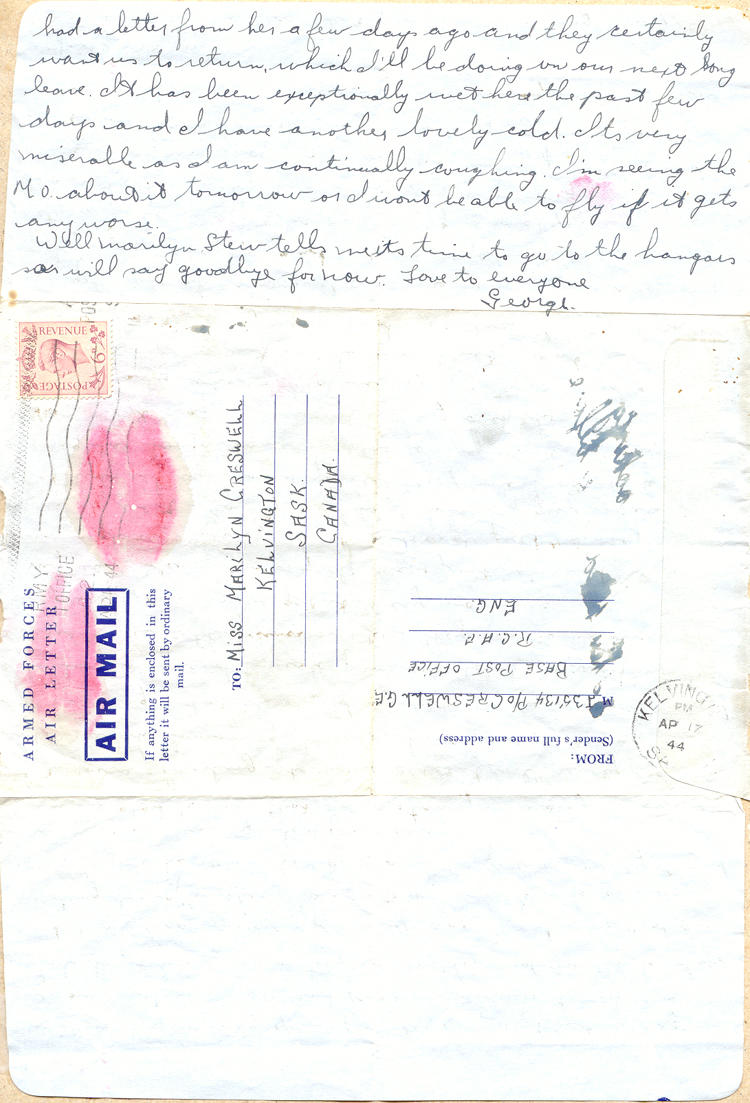 had a letter from her a few days ago and they certainly
want us to return, which I'll be doing on our next long
leave. It has been exceptionally wet here the past few
days and I have another lovely cold. Its very
miserable as I am continually coughing. I'm seeing the
M.O. about it tomorrow or I wont be able to fly if it gets
any worse.
Well Marilyn Stew tells me its time to go to the hangars
so will say goodbye for now. Love to everyone
George.
POSTAGE
REVENUE
6D
ARMED FORCES
AIR LETTER
AIR MAIL
If anything is enclosed in this
letter it will be sent by ordinary
mail.
TO: MISS MARILYN CRESWELL
KELVINGTON
SASK.
CANADA.
44
FROM:
(Sender's full name and address)
P/O CRESWELL G.E.
BASE POST OFFICE
R.C.A.F.
ENG.
KELVING
PM
AP 17
44